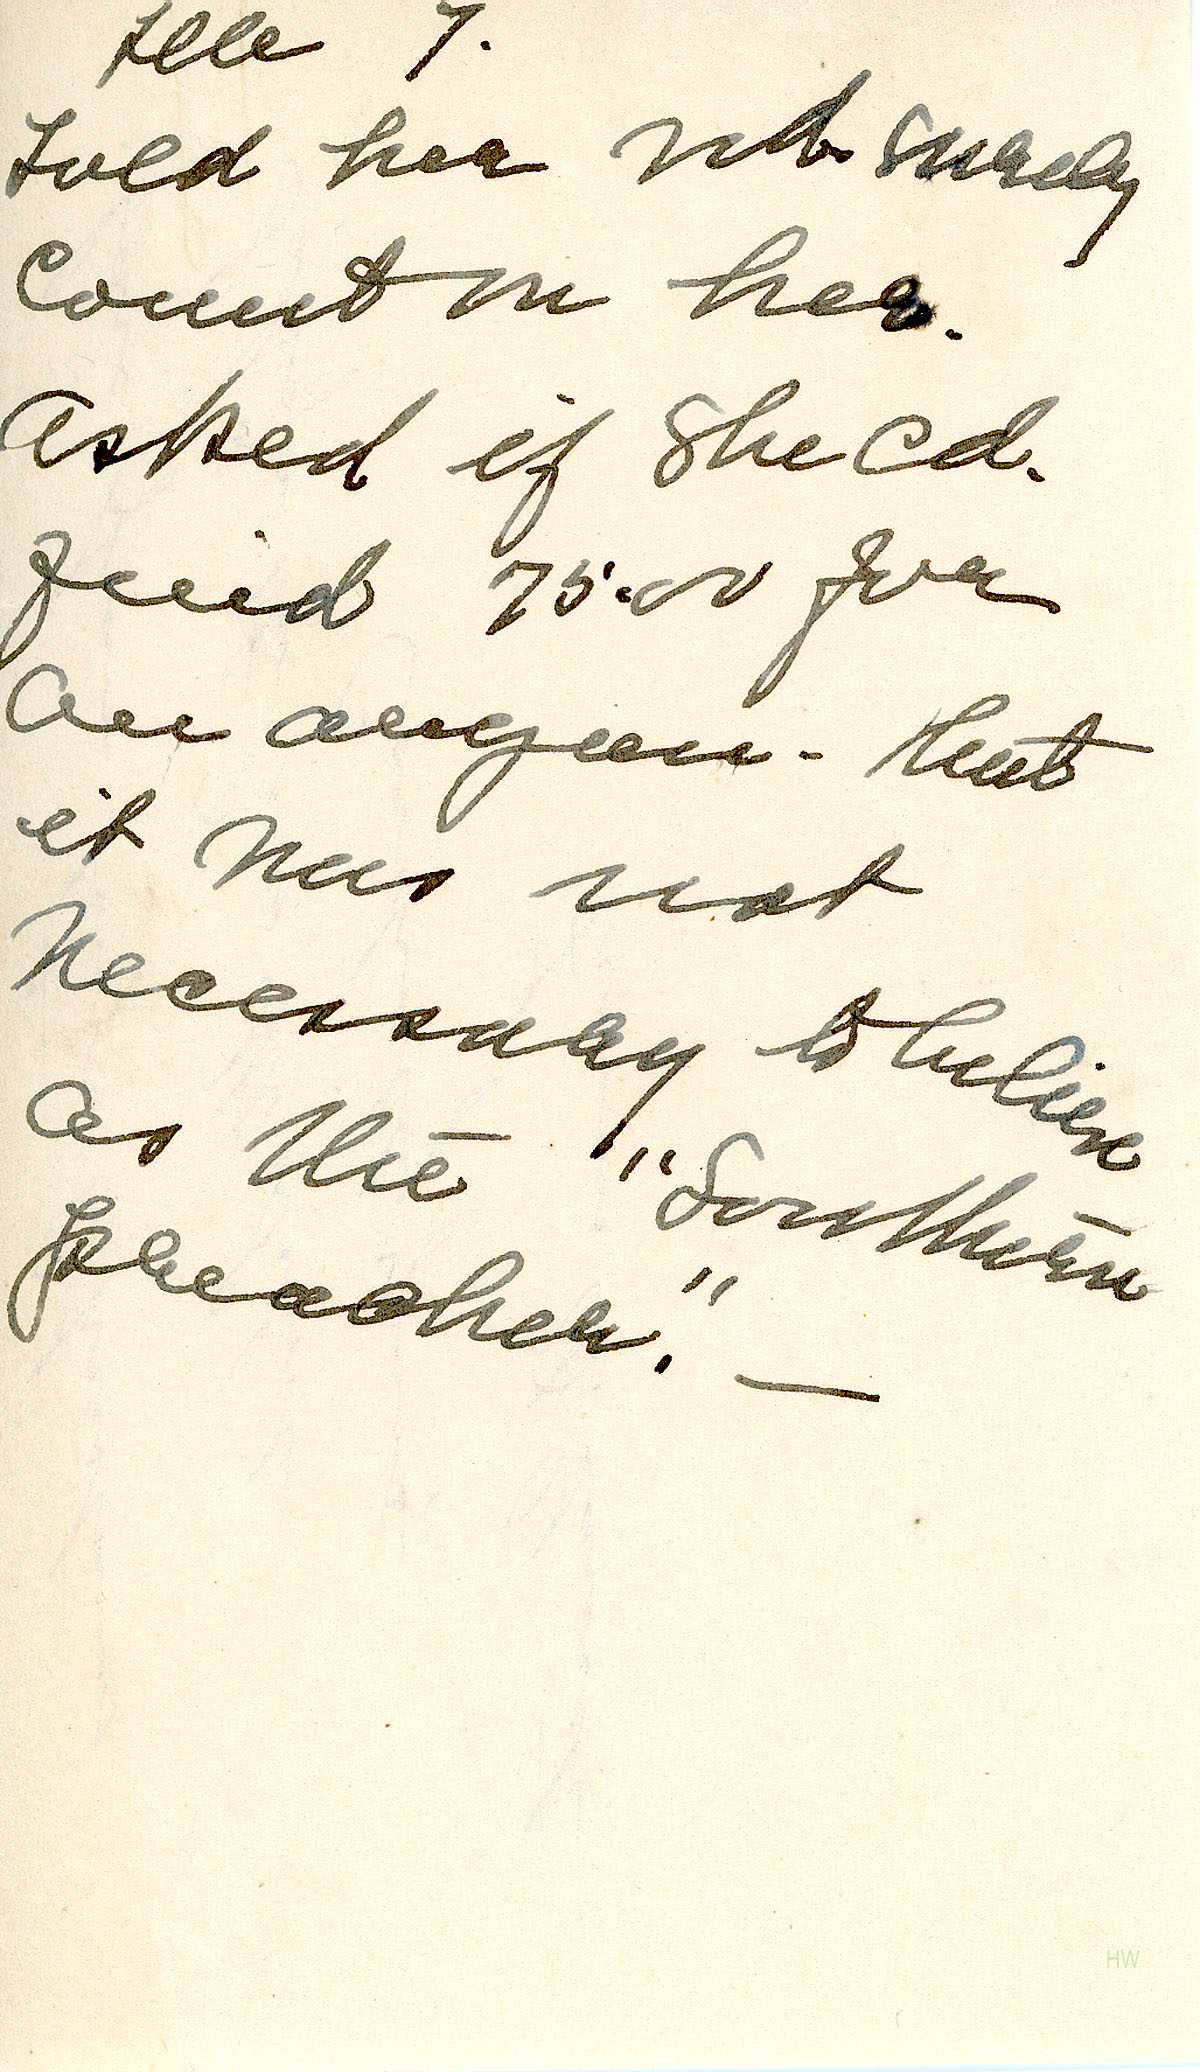 till 7.
Told her wd. surely
count on her.
Asked if she cd.
find 75.00 for
an organ - that
it was not
necessary to believe
as the "Southern
preacher." —
HW